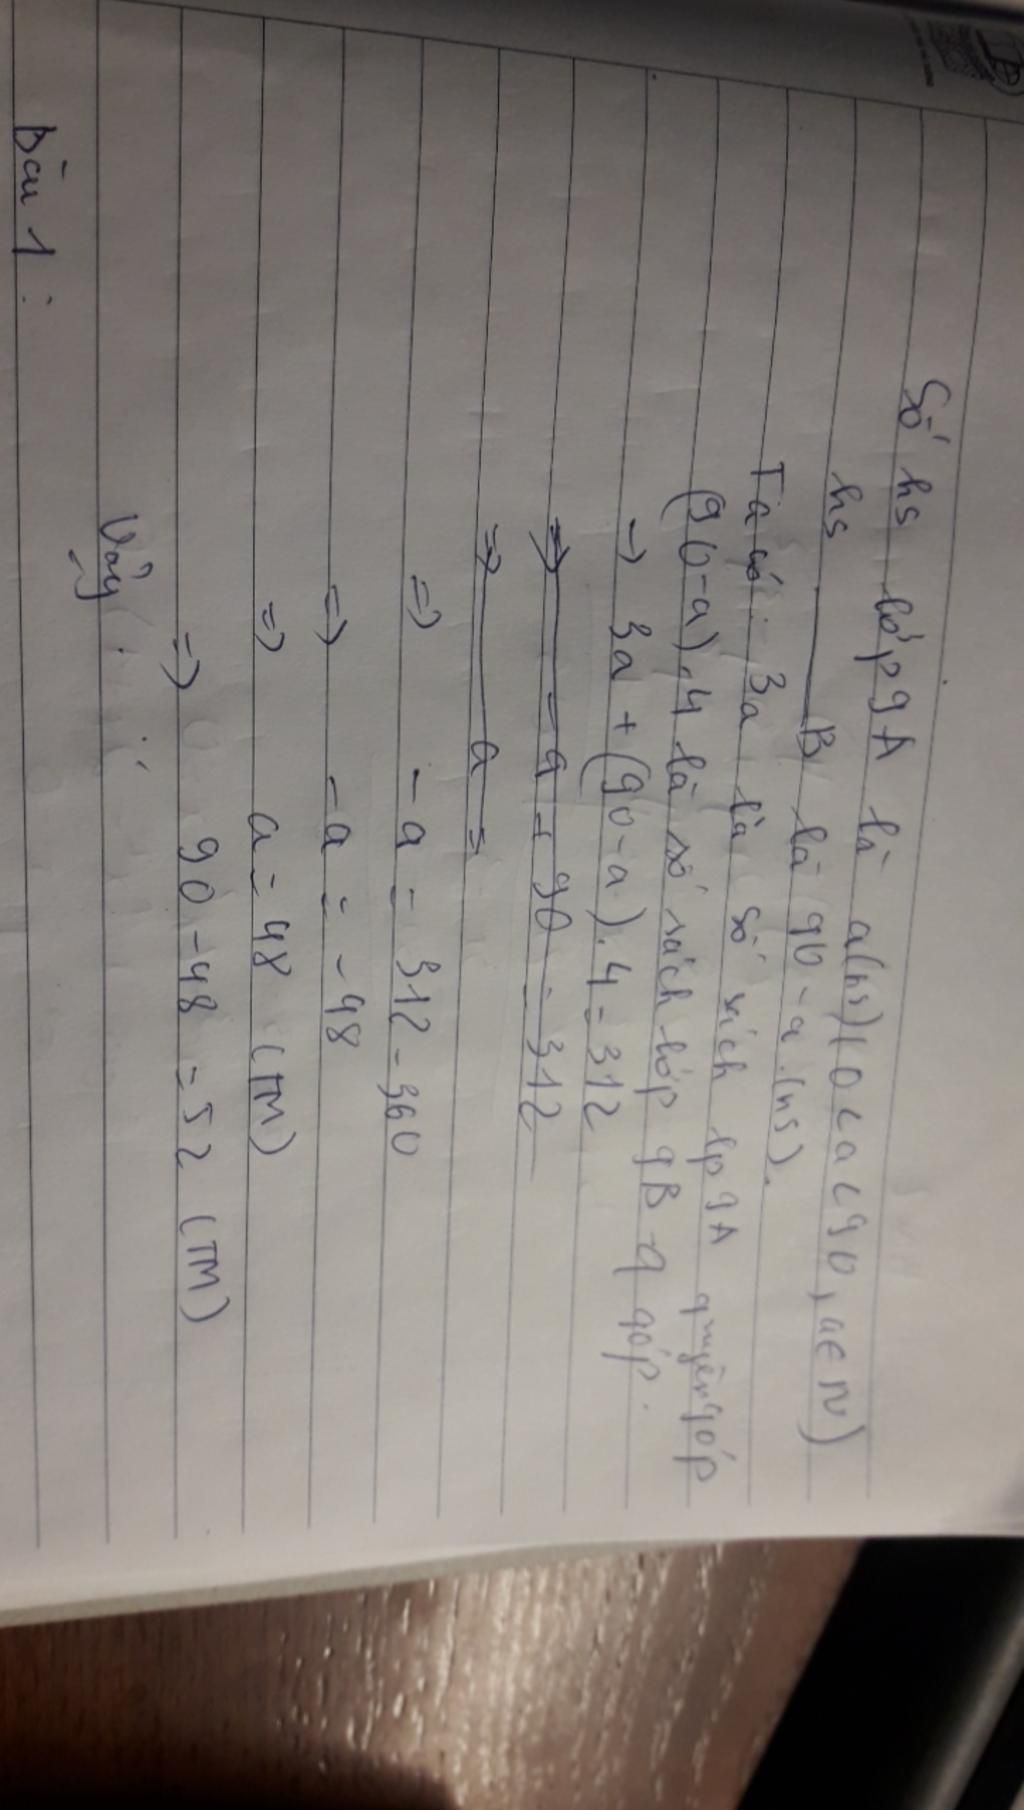 Số hs lớp 9A là a(hs)(0<a<90, a∈N)
hs ——— B là 90-a (hs).
Ta có: 3a là số sách lp 9A quyên góp
(90-a).4 là số sách lớp 9B q góp.
→ 3a + (90-a).4 = 312
=> -a + 90 = 312
=> a =
=> -a = 312-360
=> -a = -48
=> a = 48 (TM)
=> 90-48 = 52 (TM)
Vậy . . .
Bài 1: